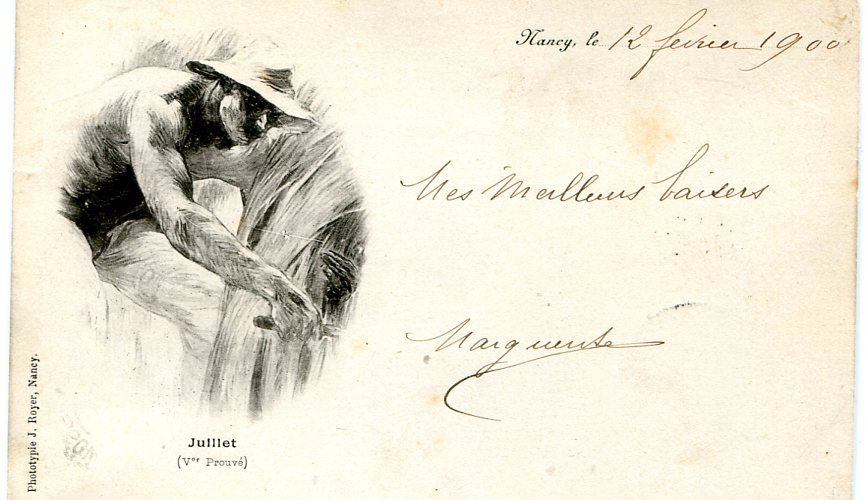 Nancy, le 12 fevrier 1900
Mes Meilleurs baisers
Marguerite
Juillet
(Vor Prouvé)
Phototypie J. Royer, Nancy.